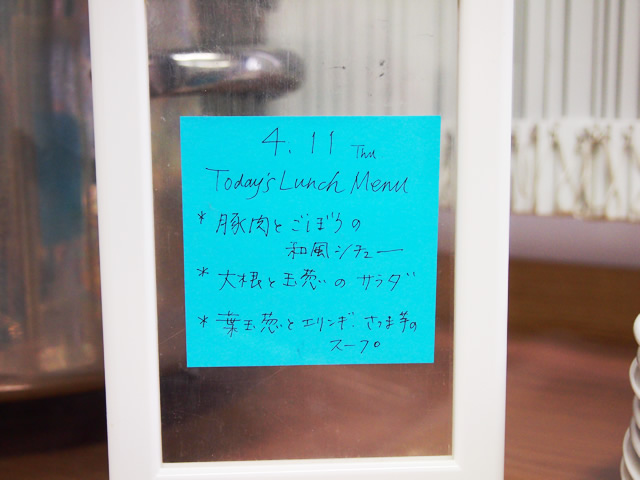 4.11 Thu
Today's Lunch Menu
* 豚肉とごぼうの
和風シチュー
* 大根と玉葱いの サラダ
* 葉玉葱いとエリンギ、さつま芋の
スープ